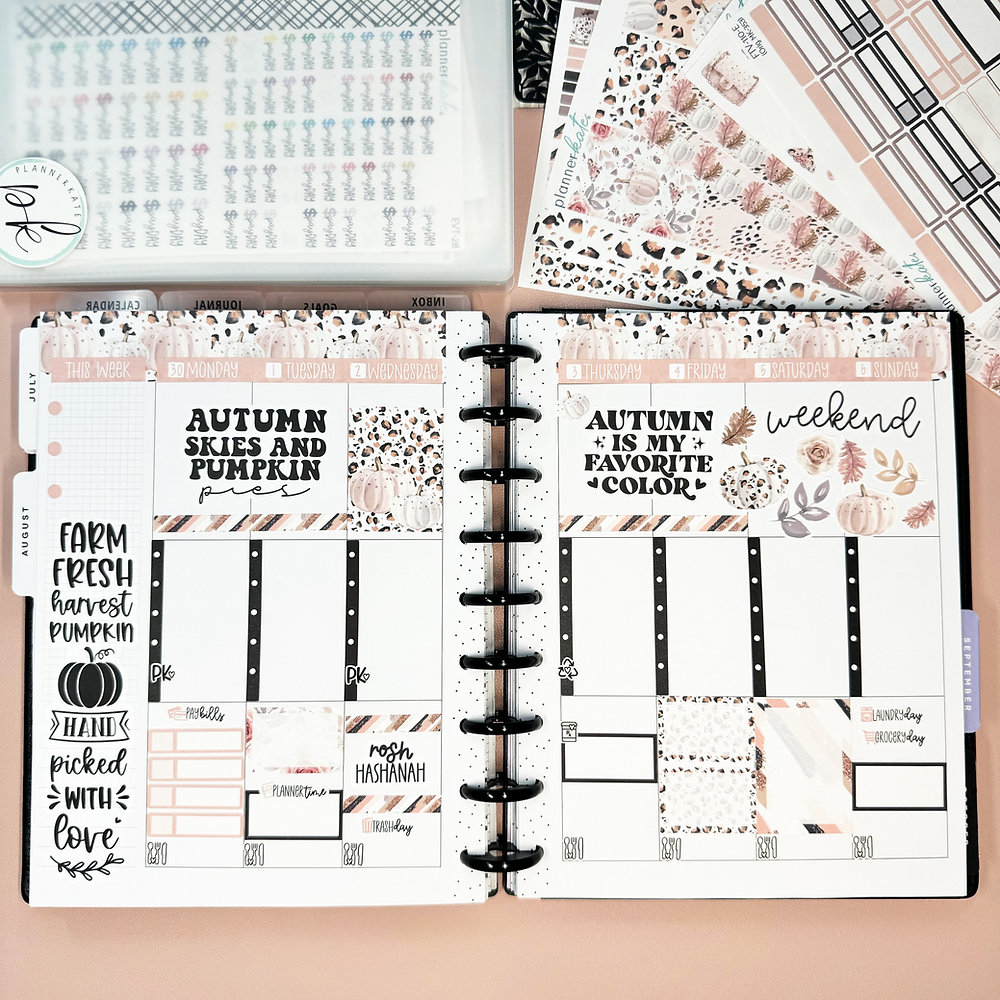 plannerkate
PLANNERKATE
pk
EVT-28
plannerkate
FTV-110-E
plannerkate
CALENDAR
JOURNAL
GOALS
INBOX
JULY
AUGUST
SEPTEMBER
THIS WEEK
30 MONDAY
1 TUESDAY
2 WEDNESDAY
FARM
FRESH
harvest
PUMPKIN
HAND
picked
WITH
love
AUTUMN
SKIES AND
PUMPKIN
pies
PK
PK
PAY bills
PLANNER time
rosh
HASHANAH
TRASH day
3 THURSDAY
4 FRIDAY
5 SATURDAY
6 SUNDAY
AUTUMN
IS MY
FAVORITE
COLOR
weekend
LAUNDRY day
GROCERY day